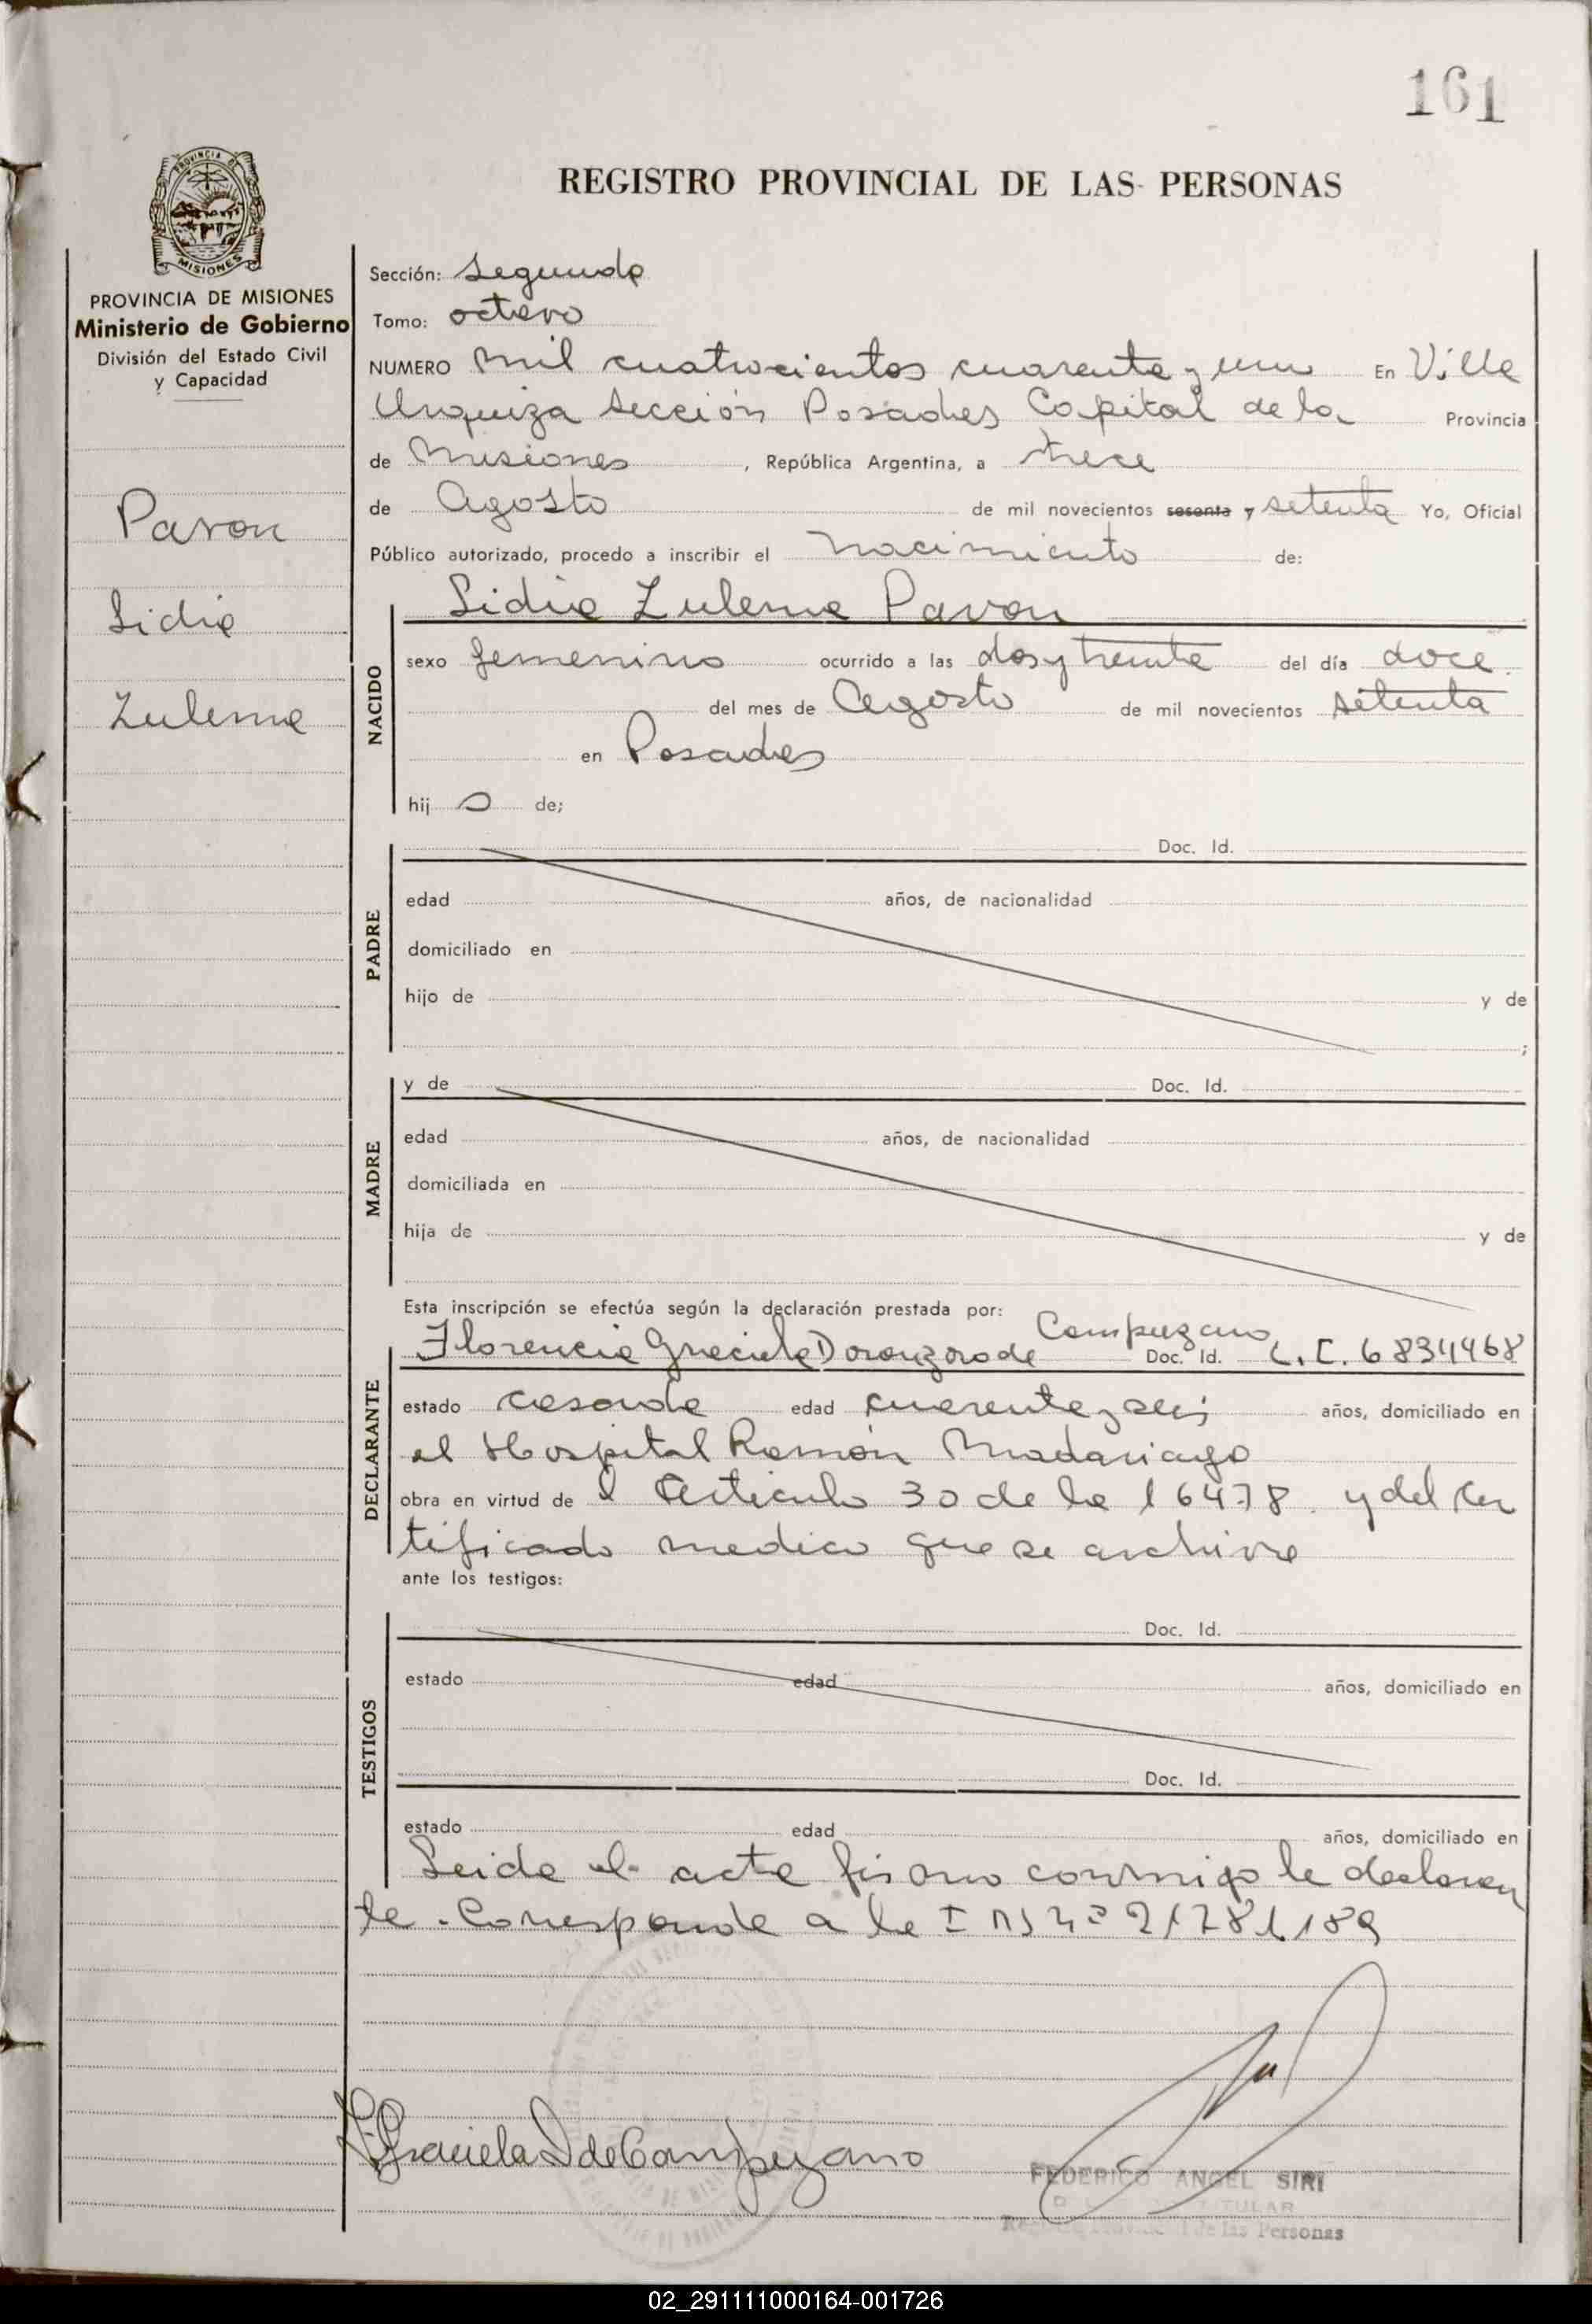 161
REGISTRO PROVINCIAL DE LAS PERSONAS
PROVINCIA DE MISIONES
PROVINCIA DE MISIONES
Ministerio de Gobierno
División del Estado Civil
y Capacidad
Pavon
Lidia
Zulema
Sección: Segunda
Tomo: octavo
NUMERO Mil cuatrocientos cuarenta y uno En Villa
Urquiza Sección Posadas Capital de la Provincia
de Misiones, República Argentina, a trece
de Agosto de mil novecientos sesenta y setenta Yo, Oficial
Público autorizado, procedo a inscribir el nacimiento de:
Lidia Zulema Pavon
NACIDO
sexo femenino ocurrido a las dos y treinta del día doce
del mes de Agosto de mil novecientos setenta
en Posadas
hij de;
PADRE
Doc. Id.
edad años, de nacionalidad
domiciliado en
hijo de y de
;
MADRE
y de Doc. Id.
edad años, de nacionalidad
domiciliada en
hija de y de
Esta inscripción se efectúa según la declaración prestada por:
DECLARANTE
Florencia Graciela Doronzoro de Campuzano Doc. Id. L.C. 6834468
estado casada edad cuarenta y seis años, domiciliado en
el Hospital Ramón Madariaga
obra en virtud de l Articulo 30 de la 16478 y del Cer
tificado medico que se archiva
ante los testigos:
TESTIGOS
Doc. Id.
estado edad años, domiciliado en
Doc. Id.
estado edad años, domiciliado en
Leida el acta firmo conmigo la declaran
te. Corresponde a la 21781189
Graciela D de Campuzano
FEDERICO ANGEL SIRI
TITULAR
Registro Provincial de las Personas
02_291111000164-001726